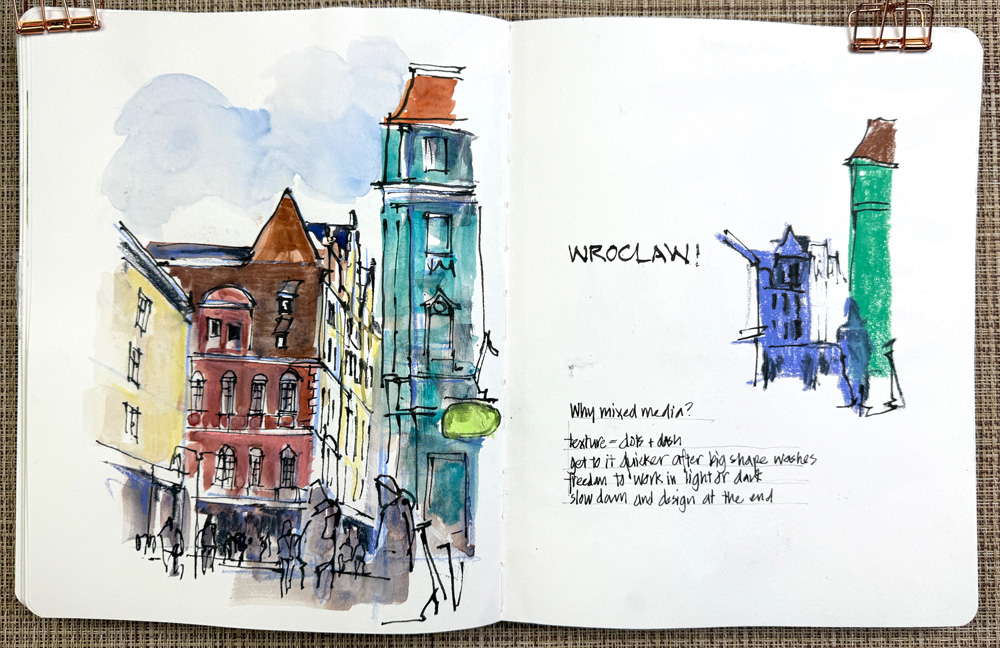 WROCLAW!
Why mixed media?
texture = dots + dash
get to it quicker after big shape washes
freedom to work in light or dark
slow down and design at the end